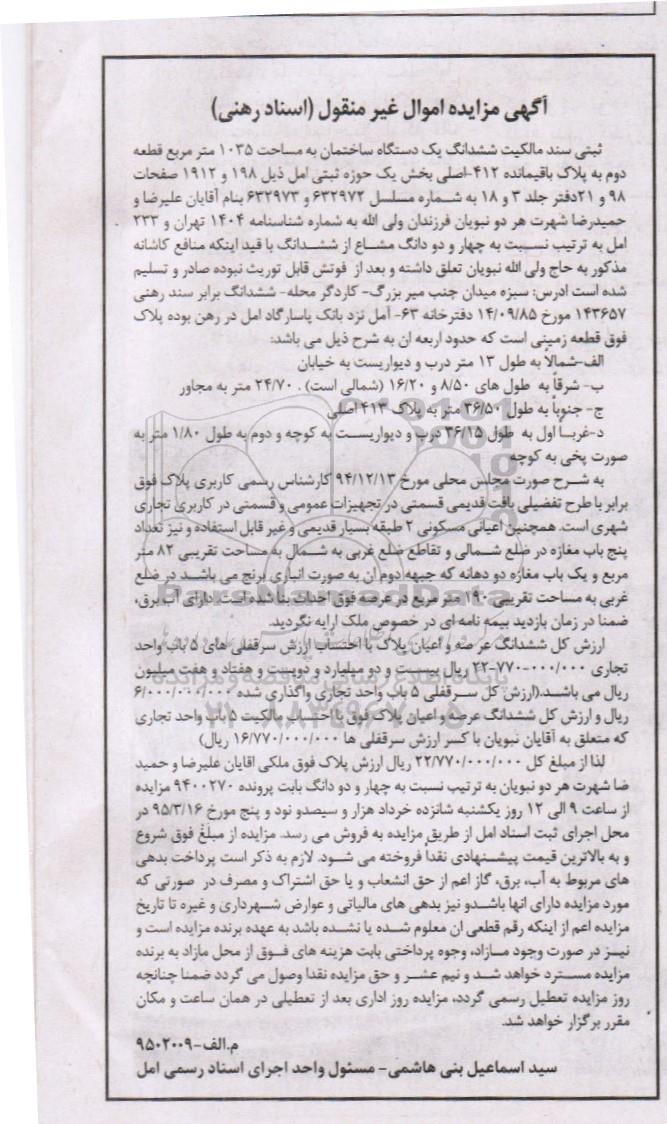 آگهی مزایده اموال غیر منقول (اسناد رهنی)
ثبتی سند مالکیت ششدانگ یک دستگاه ساختمان به مساحت ۱۰۳۵ متر مربع قطعه
دوم به پلاک باقیمانده ۴۱۲-اصلی بخش یک حوزه ثبتی امل ذیل ۱۹۸ و ۱۹۱۲ صفحات
۹۸ و ۲۱دفتر جلد ۳ و ۱۸ به شماره مسلسل ۶۳۲۹۷۲ و ۶۳۲۹۷۳ بنام آقایان علیرضا و
حمیدرضا شهرت هر دو نبویان فرزندان ولی الله به شماره شناسنامه ۱۴۰۴ تهران و ۲۳۳
امل به ترتیب نسبت به چهار و دو دانگ مشاع از ششدانگ با قید اینکه منافع کاشانه
مذکور به حاج ولی الله نبویان تعلق داشته و بعد از فوتش قابل توریث نبوده صادر و تسلیم
شده است ادرس: سبزه میدان جنب میر بزرگ- کاردگر محله- ششدانگ برابر سند رهنی
۱۴۳۶۵۷ مورخ ۱۴/۰۹/۸۵ دفترخانه ۶۳- آمل نزد بانک پاسارگاد امل در رهن بوده پلاک
فوق قطعه زمینی است که حدود اربعه ان به شرح ذیل می باشد:
الف-شمالاً به طول ۱۳ متر درب و دیواریست به خیابان
ب- شرقاً به طول های ۸/۵۰ و ۱۶/۲۰ (شمالی است) . ۲۴/۷۰ متر به مجاور
ج- جنوباً به طول ۳۶/۵۰ متر به پلاک ۴۱۳ اصلی
د-غربا اول به طول ۳۶/۱۵ درب و دیواریست به کوچه و دوم به طول ۱/۸۰ متر به
صورت پخی به کوچه
به شرح صورت مجلس محلی مورخ ۹۴/۱۲/۱۳ کارشناس رسمی کاربری پلاک فوق
برابر با طرح تفضیلی بافت قدیمی قسمتی در تجهیزات عمومی و قسمتی در کاربری تجاری
شهری است. همچنین اعیانی مسکونی ۲ طبقه بسیار قدیمی و غیر قابل استفاده و نیز تعداد
پنج باب مغازه در ضلع شمالی و تقاطع ضلع غربی به شمال به مساحت تقریبی ۸۲ متر
مربع و یک باب مغازه دو دهانه که جبهه دوم ان به صورت انباری برنج می باشد در ضلع
غربی به مساحت تقریبی ۱۹۰ متر مربع در عرصه فوق احداث بنا شده است. دارای آب برق،
ضمنا در زمان بازدید بیمه نامه ای در خصوص ملک ارایه نگردید.
ارزش کل ششدانگ عرصه و اعیان پلاک با احتساب ارزش سرقفلی های ۵ باب واحد
تجاری ۲۲-۷۷۰-۰۰۰/۰۰۰ ریال بیست و دو میلیارد و دویست و هفتاد و هفت میلیون
ریال می باشد.(ارزش کل سرقفلی ۵ باب واحد تجاری واگذاری شده ۶/۰۰۰/۰۰۰/۰۰۰
ریال و ارزش کل ششدانگ عرصه و اعیان پلاک فوق با احتساب مالکیت ۵ باب واحد تجاری
که متعلق به آقایان نبویان با کسر ارزش سرقفلی ها ۱۶/۷۷۰/۰۰۰/۰۰۰ ریال)
لذا از مبلغ کل ۲۲/۷۷۰/۰۰۰/۰۰۰ ریال ارزش پلاک فوق ملکی اقایان علیرضا و حمید
ضا شهرت هر دو نبویان به ترتیب نسبت به چهار و دو دانگ بابت پرونده ۹۴۰۰۲۷۰ مزایده
از ساعت ۹ الی ۱۲ روز یکشنبه شانزده خرداد هزار و سیصدو نود و پنج مورخ ۹۵/۳/۱۶ در
محل اجرای ثبت اسناد امل از طریق مزایده به فروش می رسد. مزایده از مبلغ فوق شروع
و به بالاترین قیمت پیشنهادی نقداً فروخته می شود. لازم به ذکر است پرداخت بدهی
های مربوط به آب، برق، گاز اعم از حق انشعاب و یا حق اشتراک و مصرف در صورتی که
مورد مزایده دارای انها باشدو نیز بدهی های مالیاتی و عوارض شهرداری و غیره تا تاریخ
مزایده اعم از اینکه رقم قطعی ان معلوم شده یا نشده باشد به عهده برنده مزایده است و
نیز در صورت وجود مازاد، وجوه پرداختی بابت هزینه های فوق از محل مازاد به برنده
مزایده مسترد خواهد شد و نیم عشر و حق مزایده نقدا وصول می گردد ضمنا چنانچه
روز مزایده تعطیل رسمی گردد، مزایده روز اداری بعد از تعطیلی در همان ساعت و مکان
مقرر برگزار خواهد شد.
م.الف-۹۵۰۲۰۰۹
سید اسماعیل بنی هاشمی- مسئول واحد اجرای اسناد رسمی امل
ParsNamadData